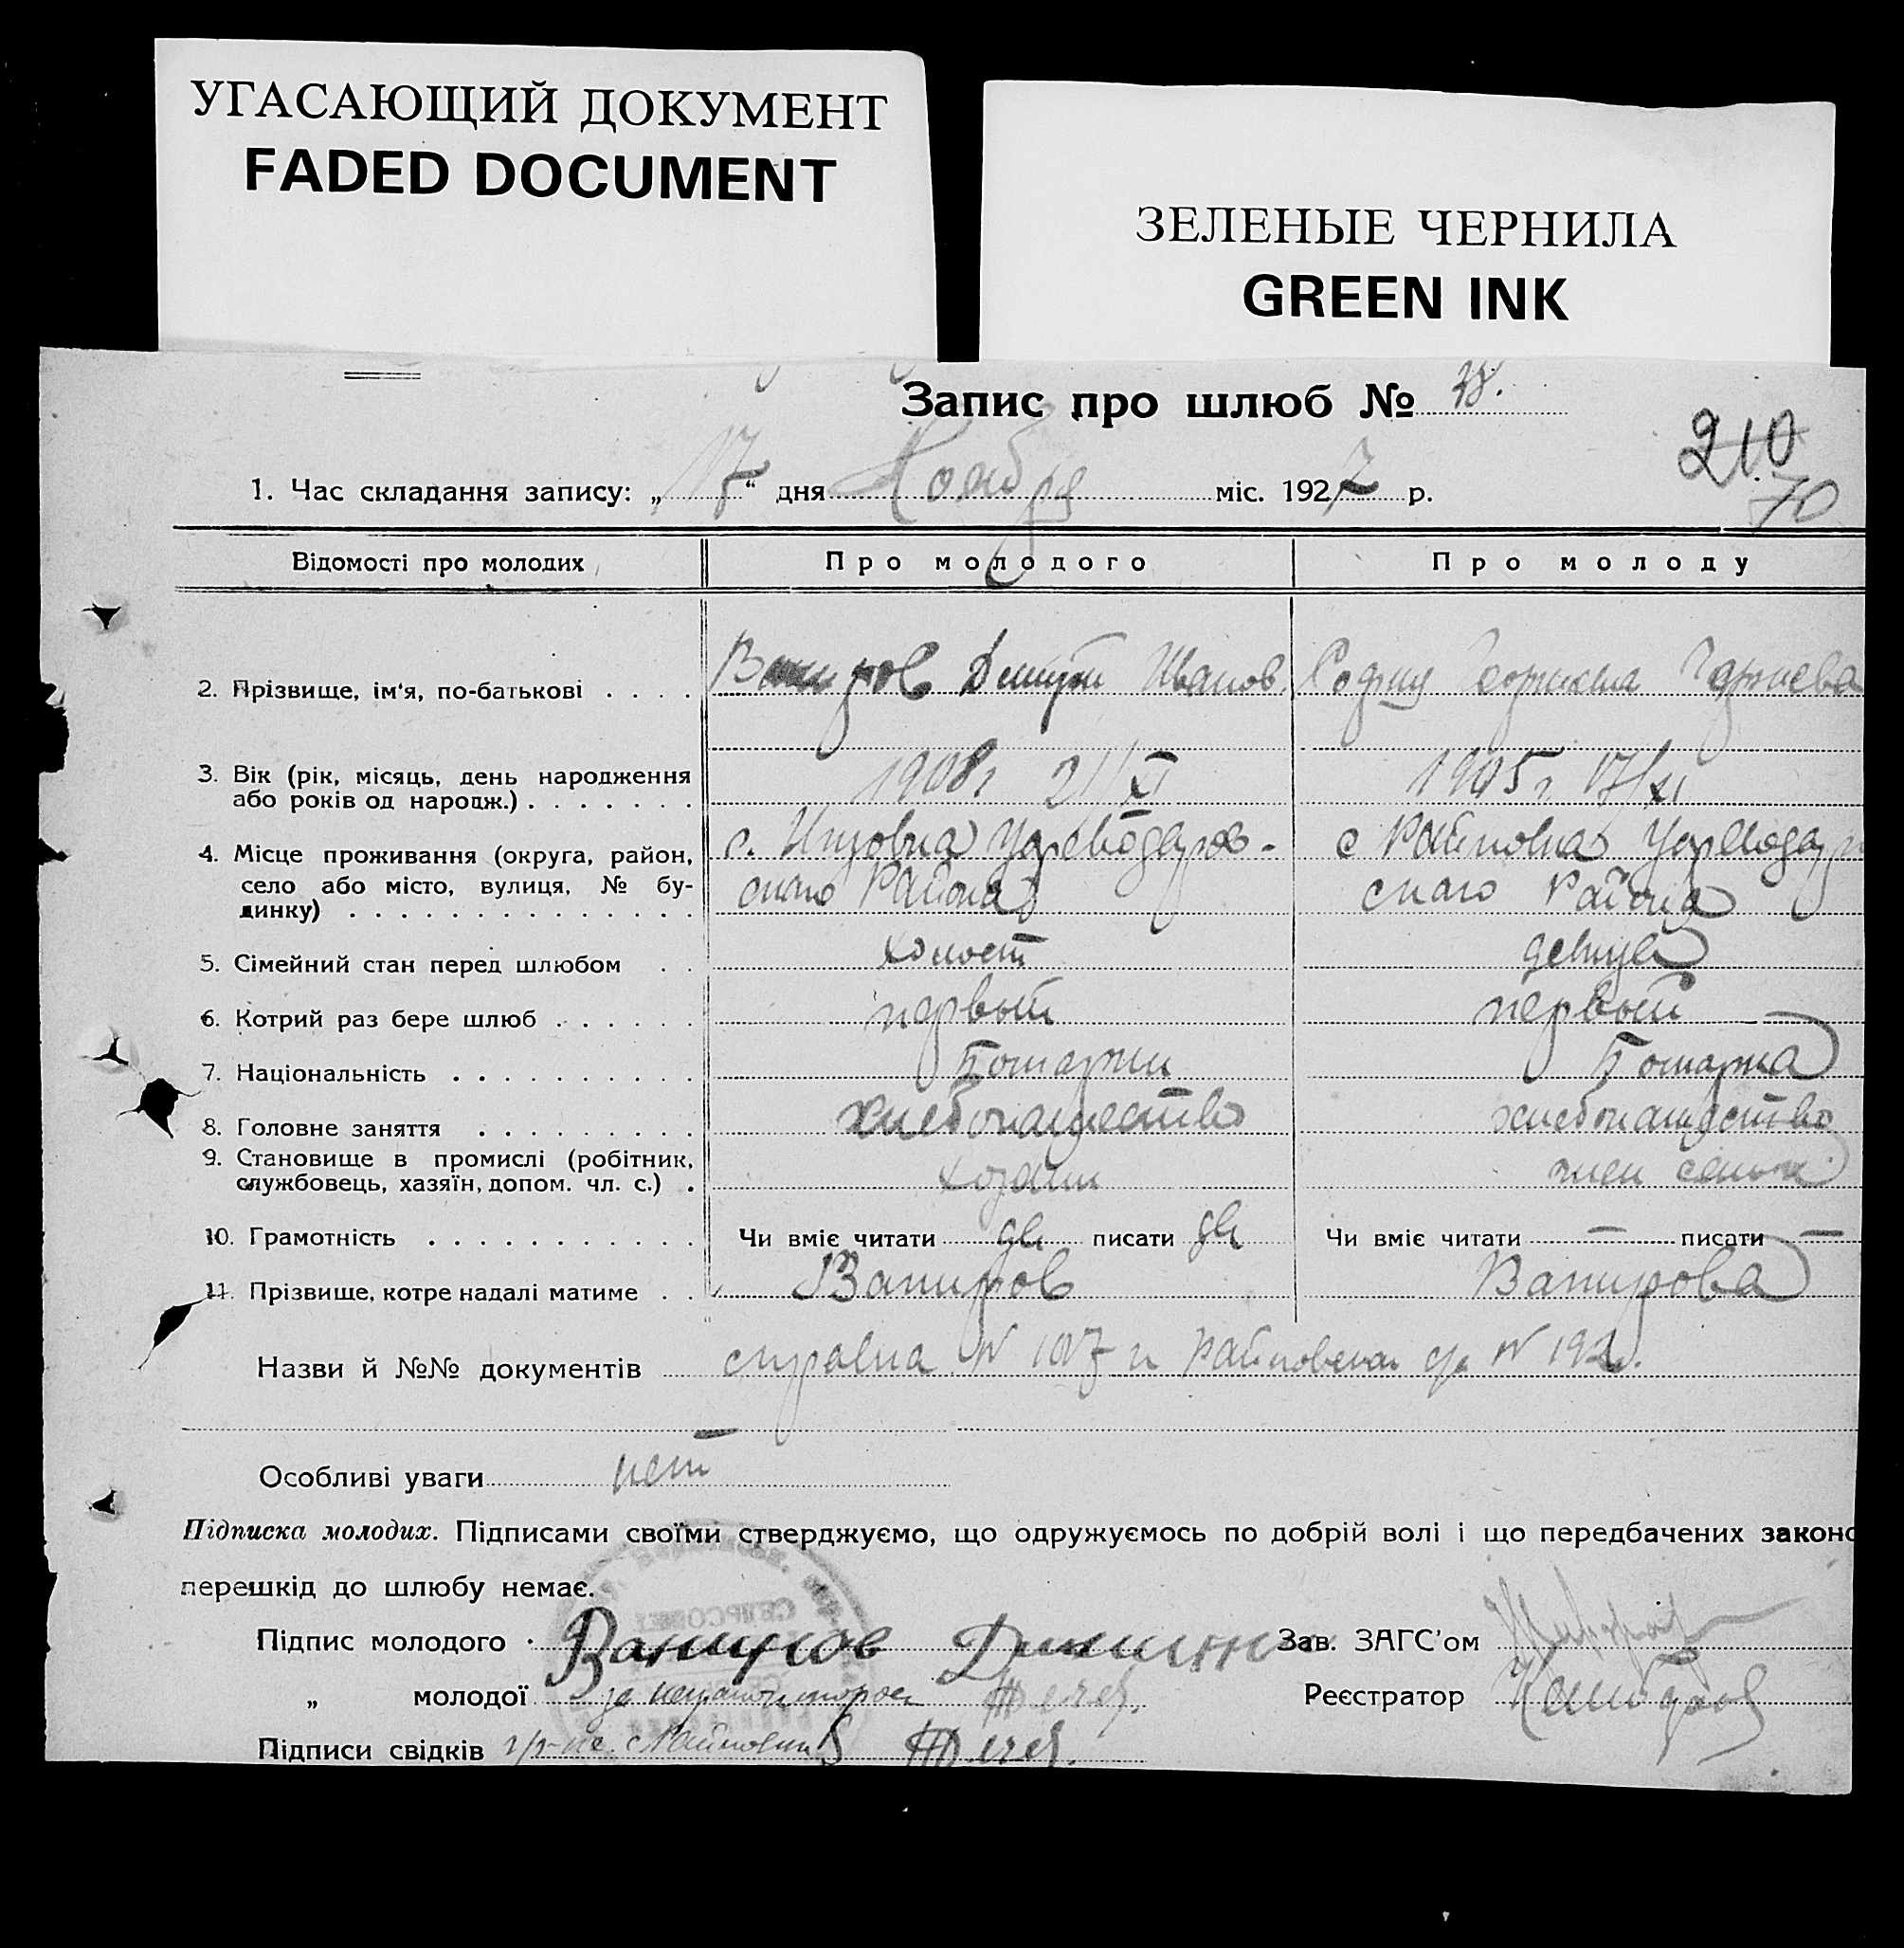 УГАСАЮЩИЙ ДОКУМЕНТ
FADED DOCUMENT
ЗЕЛЕНЫЕ ЧЕРНИЛА
GREEN INK
Запис про шлюб №
210
70
1. Час складання запису: „17“ дня Ноября міс. 1927 р.
Відомості про молодих Про молодого Про молоду
2. Прізвище, ім‘я, по-батькові Вапиров Дмитрий Иванов.
3. Вік (рік, місяць, день народження 1908г 2/XI 1905г. 17/XI
або років од народж.)
4. Місце проживання (округа, район, с. Инзовка Цареводаров- с Райновка Цареводар
село або місто, вулиця, № бу- скаго Района скаго Района
динку)
5. Сімейний стан перед шлюбом холост девица
6. Котрий раз бере шлюб первый первый
7. Національність Болгарин Болгарка
8. Головне заняття хлебопашество хлебопашество
9. Становище в промислі (робітник,
службовець, хазяїн, допом. чл. с.) хозяин член семьи
10. Грамотність Чи вміє читати да писати да Чи вміє читати — писати —
11. Прізвище, котре надалі матиме Вапиров Вапирова
Назви й №№ документів справка № 1027 и Райновская № 192
Особливі уваги нет
Підписка молодих. Підписами своїми стверджуємо, що одружуємось по добрій волі і що передбачених законо
перешкід до шлюбу немає.
Підпис молодого Вапиров Дмитрий Зав. ЗАГС'ом
„ молодої за неграмотную Реєстратор
Підписи свідків гр-не с Райновки